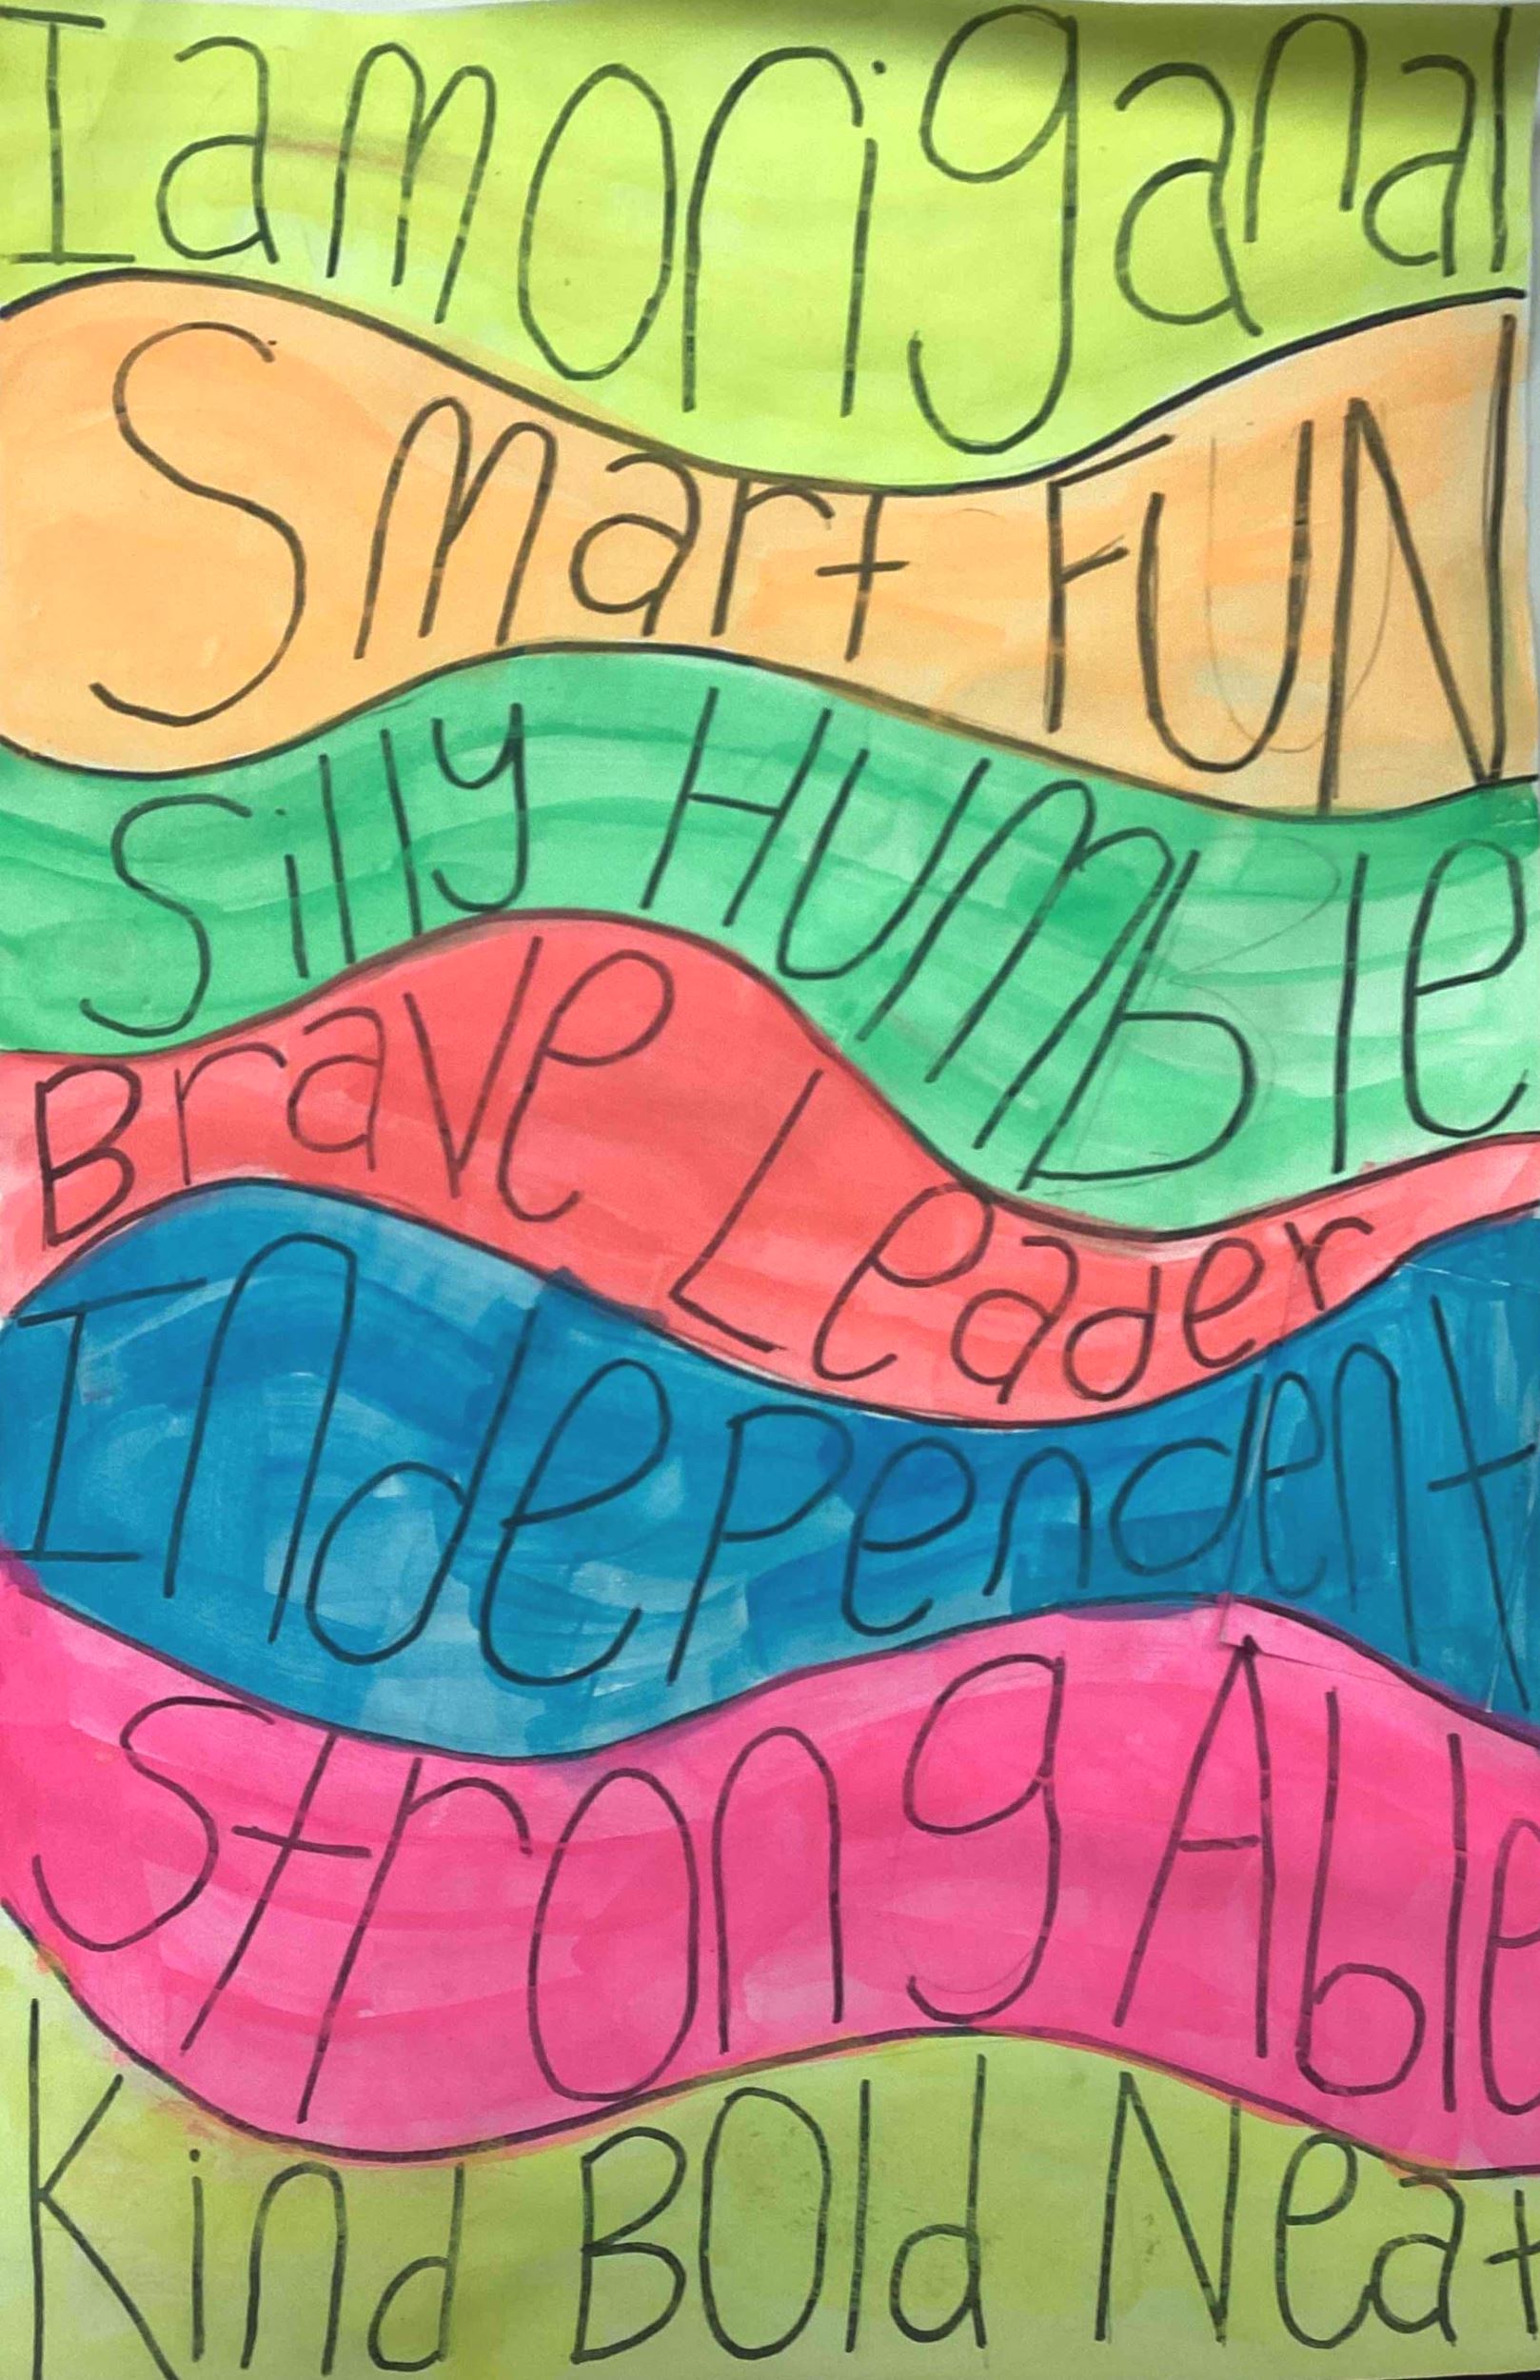 I am origanal
Smart FUN
Silly HUMBle
Brave Leader
Independent
Strong Able
Kind BOld Neat